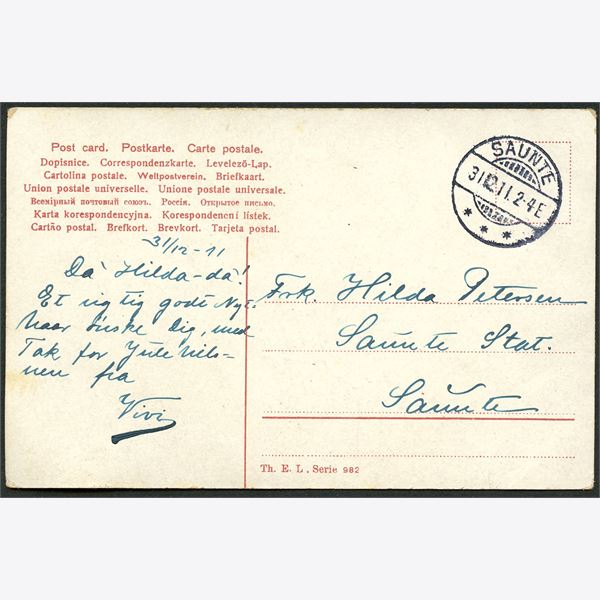 Post card. Postkarte. Carte postale.
Dopisnice. Correspondenzkarte. Levelező-Lap.
Cartolina postale. Weltpostverein. Briefkaart.
Union postale universelle. Unione postale universale.
Всемірный почтовый союзъ. Россія. Открытое письмо.
Karta korespondencyjna. Korespondenční lístek.
Cartão postal. Brefkort. Brevkort. Tarjeta postal.
31/12-11
Da Hilda-da!
Et rigtig godt Nyt-
haar önske Dig, med
Tak for Jule hils-
nen fra
Vivi
SAUNTE
31 12.11. 2-4 E
Frk. Hilda Petersen
Saunte Stat.
Saunte
Th. E. L. Serie 982